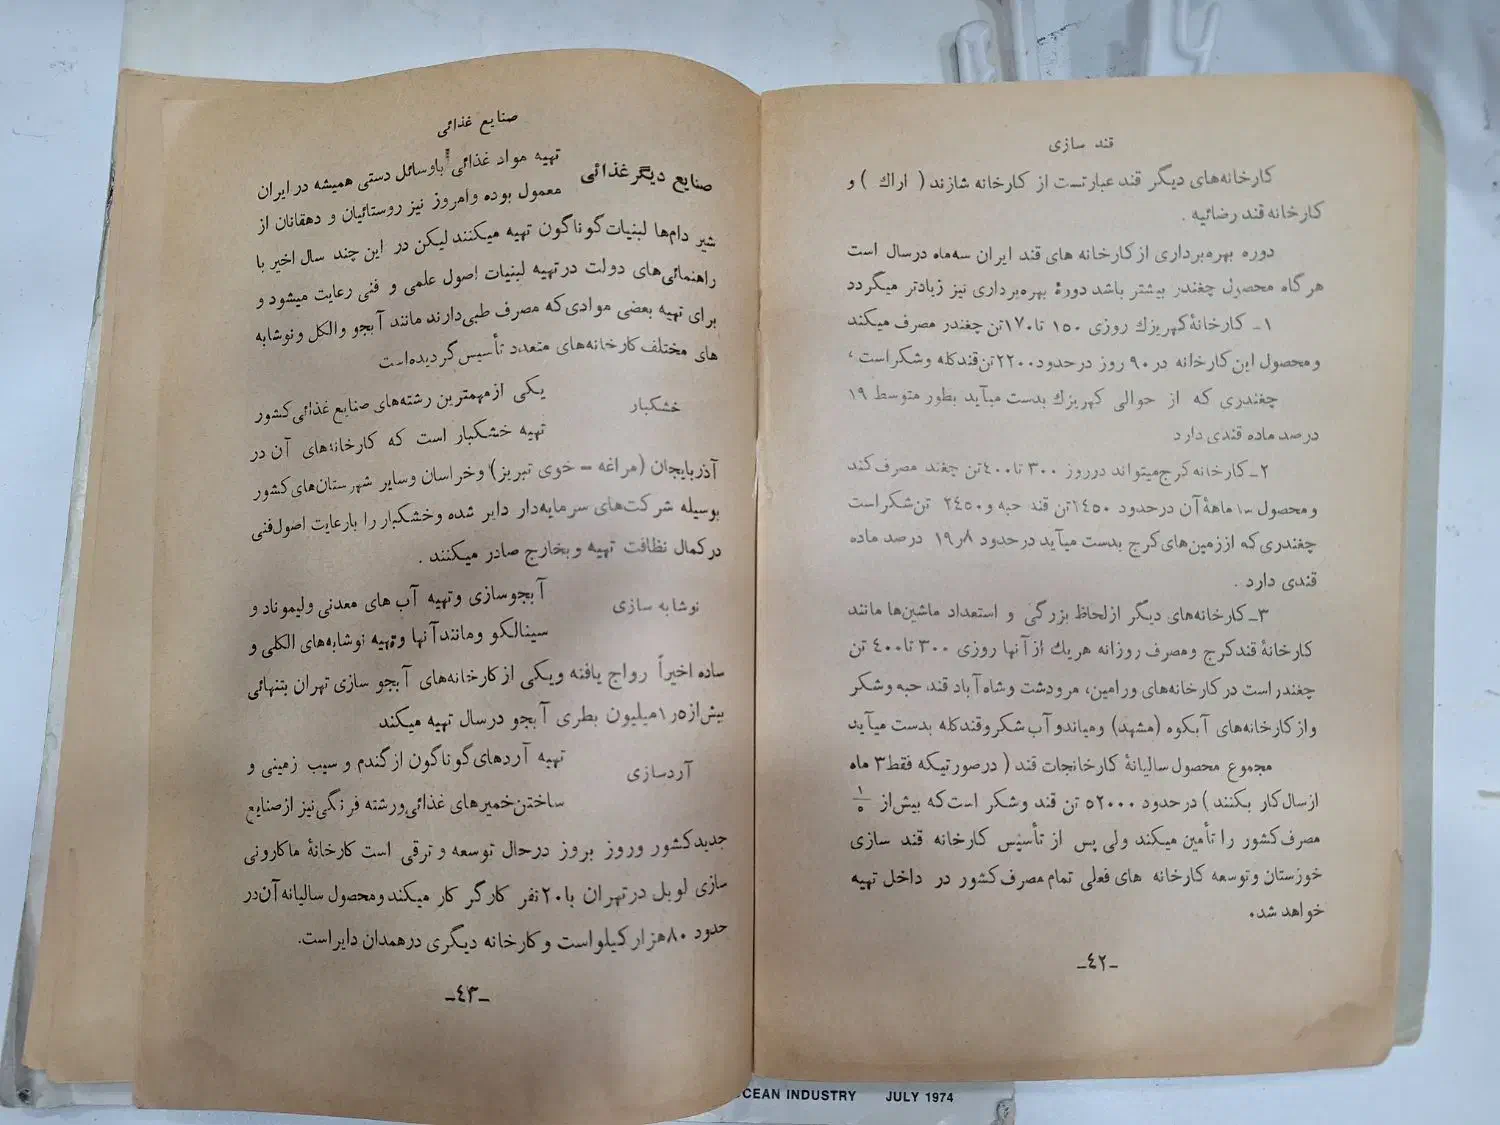 قند سازی
کارخانه‌های دیگر قند عبارتست از کارخانه شازند ( اراك ) و
کارخانه قند رضائیه .
دوره بهره‌برداری از کارخانه های قند ایران سه‌ماه درسال است
هر گاه محصول چغندر بیشتر باشد دورهٔ بهره‌برداری نیز زیادتر میگردد
۱ـ کارخانهٔ کهریزك روزی ۱۵۰ تا ۱۷۰ تن چغندر مصرف میکند
و محصول این کارخانه در ۹۰ روز در حدود ۲۲۰۰ تن قند کله و شکر است ،
چغندری که از حوالی کهریزك بدست میآید بطور متوسط ۱۹
درصد ماده قندی دارد
۲ـ کارخانه کرج میتواند درروز ۳۰۰ تا ۴۰۰ تن چغند مصرف کند
و محصول ماههٔ آن در حدود ۱۴۵۰ تن قند حبه و ۲۴۵۰ تن شکر است
چغندری که اززمین‌های کرج بدست میآید در حدود ۱۹٫۸ درصد ماده
قندی دارد .
۳ـ کارخانه‌های دیگر ازلحاظ بزرگی و استعداد ماشین‌ها مانند
کارخانهٔ قند کرج و مصرف روزانه هریك از آنها روزی ۳۰۰ تا ۴۰۰ تن
چغندر است در کارخانه‌های ورامین، مرودشت و شاه‌آباد قند، حبه و شکر
و از کارخانه‌های آبکوه (مشهد) و میاندوآب شکر و قند کله بدست میآید
مجموع محصول سالیانهٔ کارخانجات قند ( درصورتیکه فقط ۳ ماه
از سال کار بکنند ) در حدود ۵۲۰۰۰ تن قند و شکر است که بیش از ۱/۵
مصرف کشور را تأمین میکند ولی پس از تأسیس کارخانه قند سازی
خوزستان و توسعه کارخانه های فعلی تمام مصرف کشور در داخل تهیه
خواهد شد.
ـ۴۲ـ
صنایع غذائی
صنایع دیگر غذائی
تهیه مواد غذائی باوسائل دستی همیشه در ایران
معمول بوده و امروز نیز روستائیان و دهقانان از
شیر دام‌ها لبنیات گوناگون تهیه میکنند لیکن در این چند سال اخیر با
راهنمائی‌های دولت در تهیه لبنیات اصول علمی و فنی رعایت میشود و
برای تهیه بعضی موادی که مصرف طبی دارند مانند آبجو و الکل و نوشابه
های مختلف کارخانه‌های متعدد تأسیس گردیده است
خشکبار
یکی از مهمترین رشته‌های صنایع غذائی کشور
تهیه خشکبار است که کارخانه‌های آن در
آذربایجان (مراغه – خوی تبریز) و خراسان و سایر شهرستان‌های کشور
بوسیله شرکت‌های سرمایه‌دار دایر شده و خشکبار را بارعایت اصول فنی
در کمال نظافت تهیه و بخارج صادر میکنند .
نوشابه سازی
آبجوسازی و تهیه آب های معدنی و لیموناد و
سینالکو و مانند آنها و تهیه نوشابه‌های الکلی و
ساده اخیراً رواج یافته و یکی از کارخانه‌های آبجو سازی تهران بتنهائی
بیش از ۱٫۵ میلیون بطری آبجو در سال تهیه میکند
آردسازی
تهیه آردهای گوناگون از گندم و سیب زمینی و
ساختن خمیرهای غذائی و رشته فرنگی نیز از صنایع
جدید کشور و روز بروز درحال توسعه و ترقی است کارخانهٔ ماکارونی
سازی لوبل در تهران با ۲۰ نفر کارگر کار میکند و محصول سالیانه آن در
حدود ۸۰ هزار کیلو است و کارخانه دیگری در همدان دایر است.
ـ۴۳ـ
OCEAN INDUSTRY JULY 1974